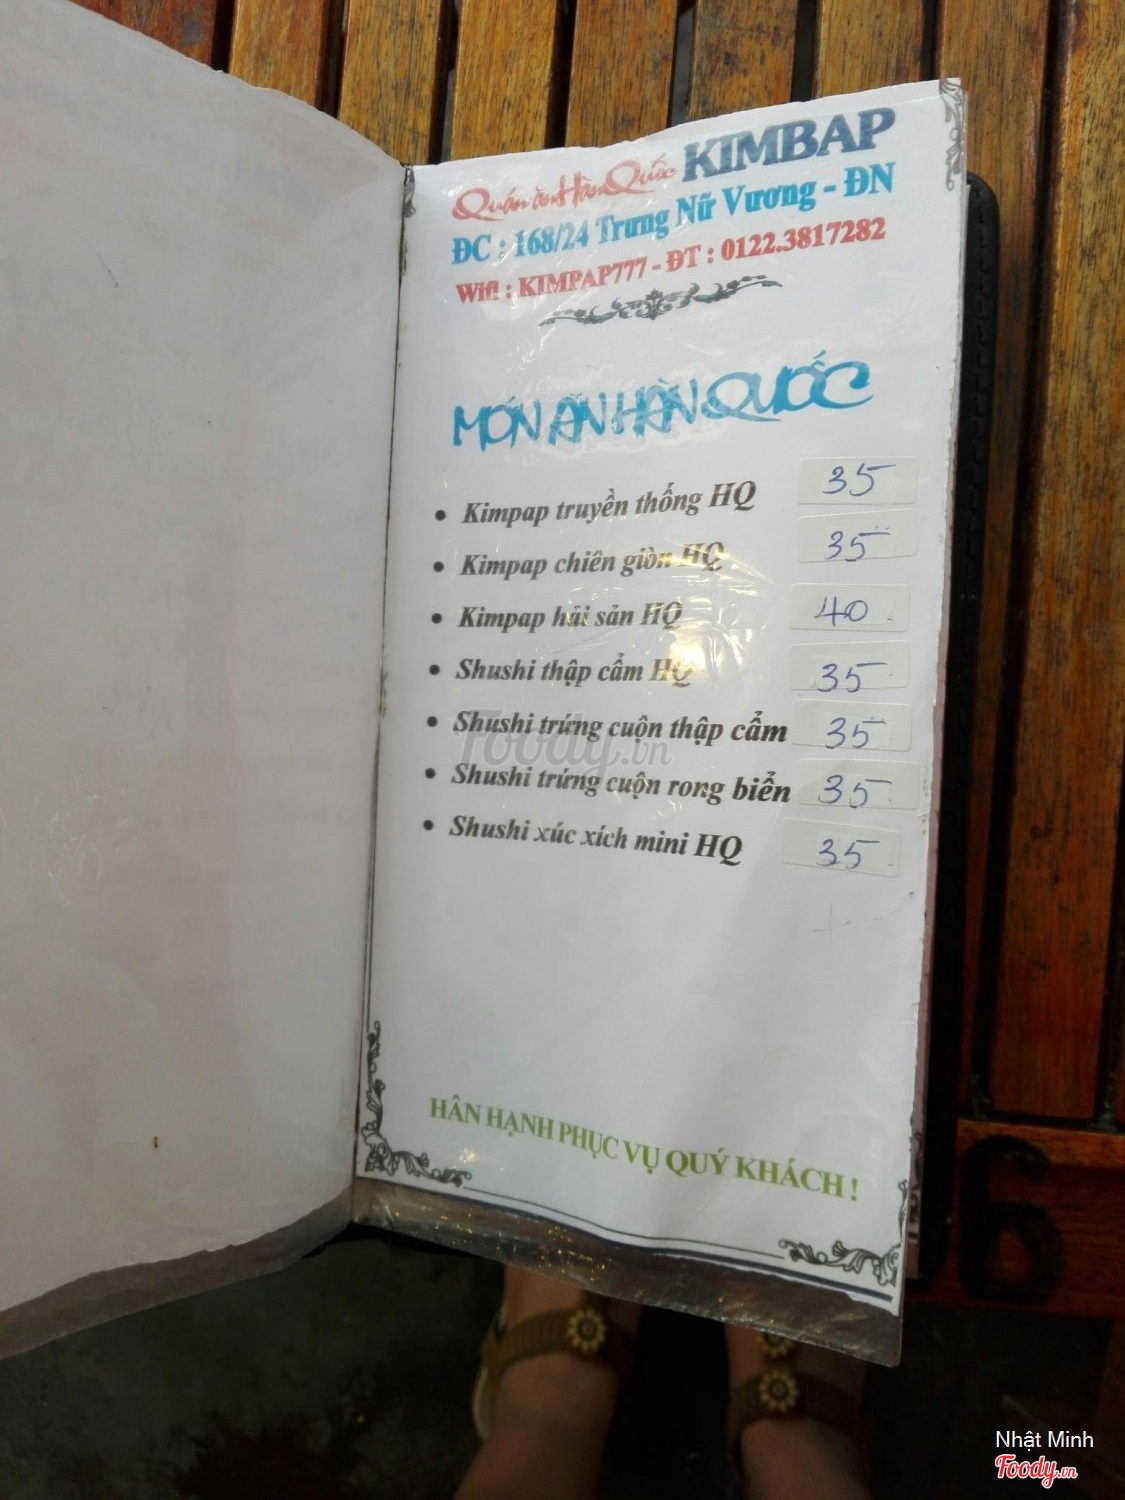 Quán ăn Hàn Quốc KIMBAP
ĐC : 168/24 Trưng Nữ Vương - ĐN
Wifi : KIMPAP777 - ĐT : 0122.3817282
MÓN ĂN HÀN QUỐC
• Kimpap truyền thống HQ 35
• Kimpap chiên giòn HQ 35
• Kimpap hải sản HQ 40
• Shushi thập cẩm HQ 35
• Shushi trứng cuộn thập cẩm 35
• Shushi trứng cuộn rong biển 35
• Shushi xúc xích mini HQ 35
Foody.vn
HÂN HẠNH PHỤC VỤ QUÝ KHÁCH !
6
Nhật Minh
Foody.vn